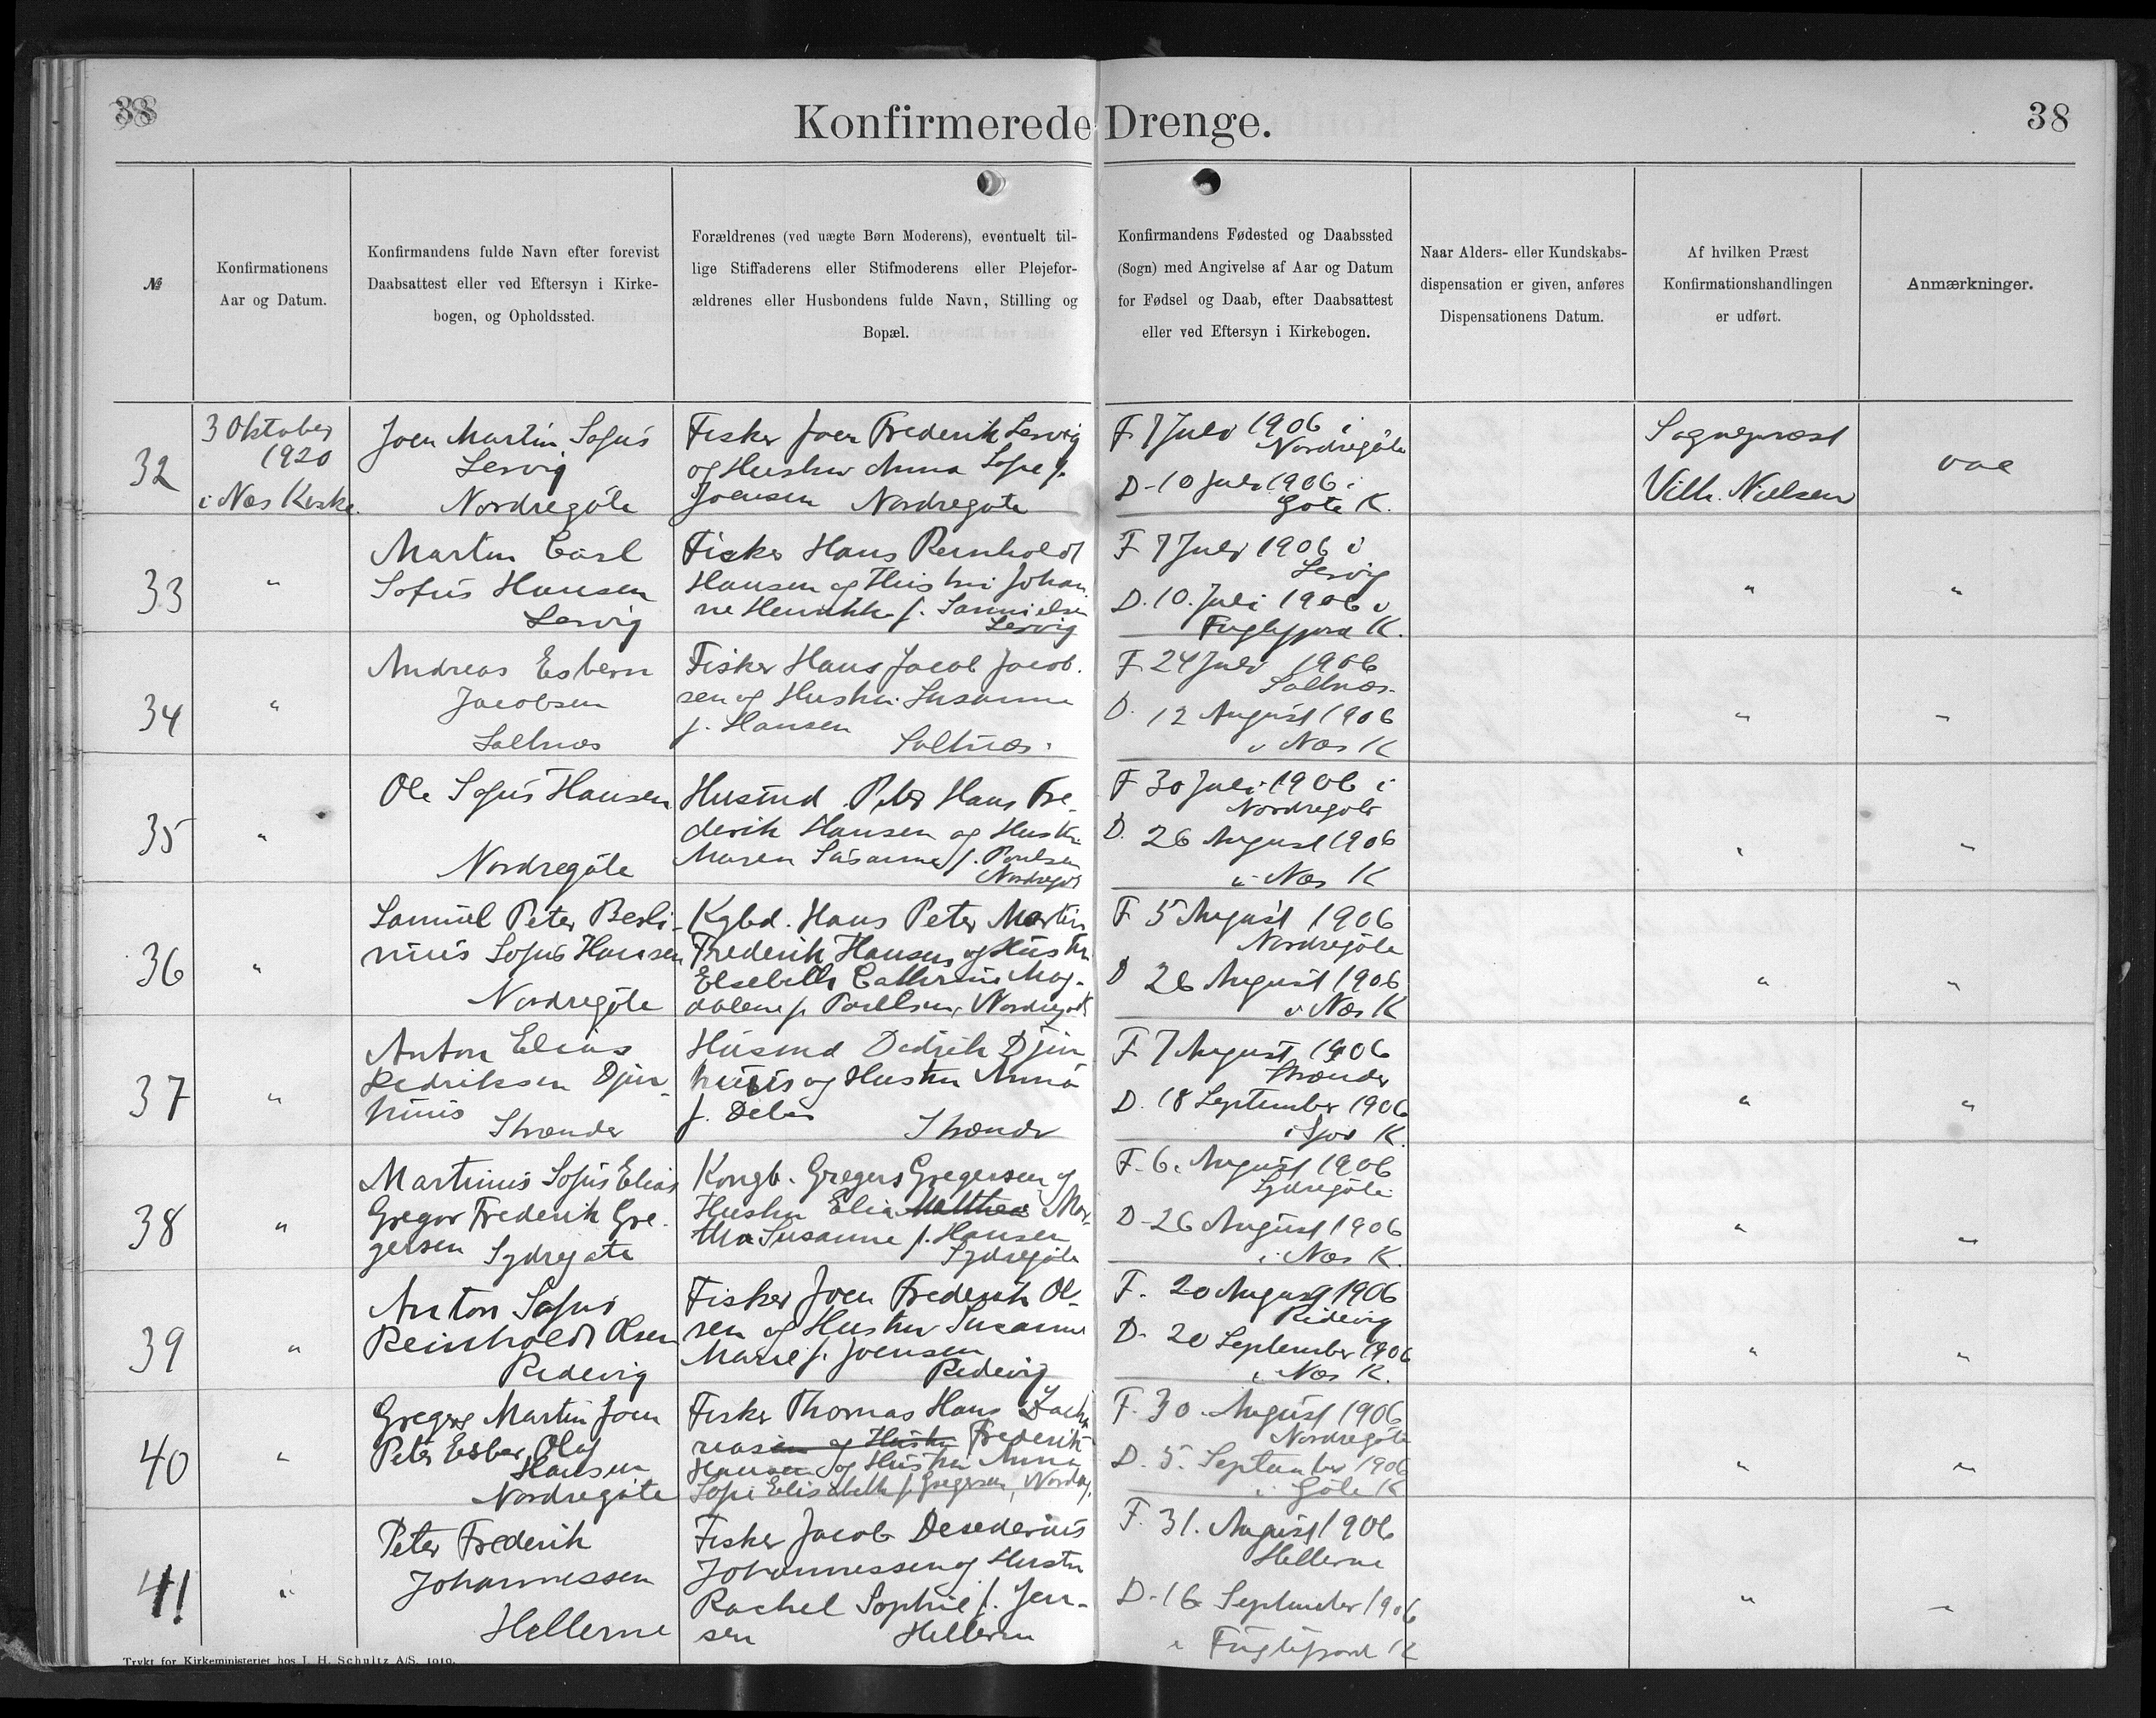 38
Konfirmerede Drenge.
38
№
Konfirmationens
Aar og Datum.
Konfirmandens fulde Navn efter forevist
Daabsattest eller ved Eftersyn i Kirke-
bogen, og Opholdssted.
Forældrenes (ved uægte Børn Moderens), eventuelt til-
lige Stiffaderens eller Stifmoderens eller Plejefor-
ældrenes eller Husbondens fulde Navn, Stilling og
Bopæl.
Konfirmandens Fødested og Daabssted
(Sogn) med Angivelse af Aar og Datum
for Fødsel og Daab, efter Daabsattest
eller ved Eftersyn i Kirkebogen.
Naar Alders- eller Kundskabs-
dispensation er given, anføres
Dispensationens Datum.
Af hvilken Præst
Konfirmationshandlingen
er udført.
Anmærkninger.
32
3 Oktober
1920
i Næs Kirke.
Joen Martin Sofus
Lervig
Nordregöte
Fisker Joen Frederik Lervig
og Hustru Anna Sofie f.
Joensen Nordregöte
F. 7 Juli 1906 i
Nordregöte
D. 10 Juli 1906 i
Göte K.
Sognepræst
Vilh. Nielsen
vac
33
"
Martin Carl
Sofus Hansen
Lervig
Fisker Hans Reinholdt
Hansen og Hustru Johan
ne Henrikke f. Samuelsen
Lervig
F 7 Juli 1906 i
Lervig
D. 10. Juli 1906 i
Fuglefjord K.
"
"
34
"
Andreas Esbern
Jacobsen
Saltnæs
Fisker Hans Jacob Jacob-
sen og Hustru Susanne
f. Hansen
Saltnæs.
F. 24 Juli 1906
Saltnæs.
D. 12 August 1906
i Næs K
"
"
35
"
Ole Sofus Hansen
Nordregöte
Husmd. Peter Hans Fre-
derik Hansen og Hustru
Maren Susanne f. Poulsen
Nordregöte
F 30 Juli 1906 i
Nordregöte
D. 26 August 1906
i Næs K
"
"
36
"
Samuel Peter Berli-
nius Sofus Hansen
Nordregöte
Kgbd. Hans Peter Martin
Frederik Hansen og Hustru
Elsebeth Cathrine Mag-
dalene f. Poulsen, Nordregöte
F 5 August 1906
Nordregöte
D 26 August 1906
i Næs K
"
"
37
"
Anton Elias
Dedriksen Djur-
huus
Strænder
Husmd Didrik Djur
huus og Hustru Anna
f. Debes
Strænder
F. 7 August 1906
Strænder
D. 18 September 1906
i Sjov K.
"
"
38
"
Martinus Sofus Elias
Gregor Frederik Gre-
gersen Sydregøte
Kongb. Gregers Gregersen og
Hustru Elia Matthea Mar-
tha Susanne f. Hansen
Sydregöte
F. 6. August 1906
Sydregöte
D. 26 August 1906
i Næs K.
"
"
39
"
Anton Sofus
Reinholdt Olsen
Ridevig
Fisker Joen Frederik Ol-
sen og Hustru Susanne
Marie f. Joensen
Ridevig
F. 20 August 1906
Ridevig
D. 20 September 1906
i Næs K.
"
"
40
"
Gregers Martin Joen
Peter Esber Olaf
Hansen
Nordregöte
Fisker Thomas Hans Zacha
riasen og Hustru Frederik
Hansen og Hustru Anna
Sofie Elisabeth f. Gregersen, Nordreg.
F. 30. August 1906
Nordregöte
D. 5. September 1906
i Göte K
"
"
41
"
Peter Frederik
Johannessen
Hellerne
Fisker Jacob Desederius
Johannessen og Hustru
Rachel Sophie f. Jen-
sen Hellerne
F. 31. August 1906
Hellerne
D. 16 September 1906
i Fuglefjord K
"
"
Trykt for Kirkeministeriet hos J. H. Schultz A/S. 1919.